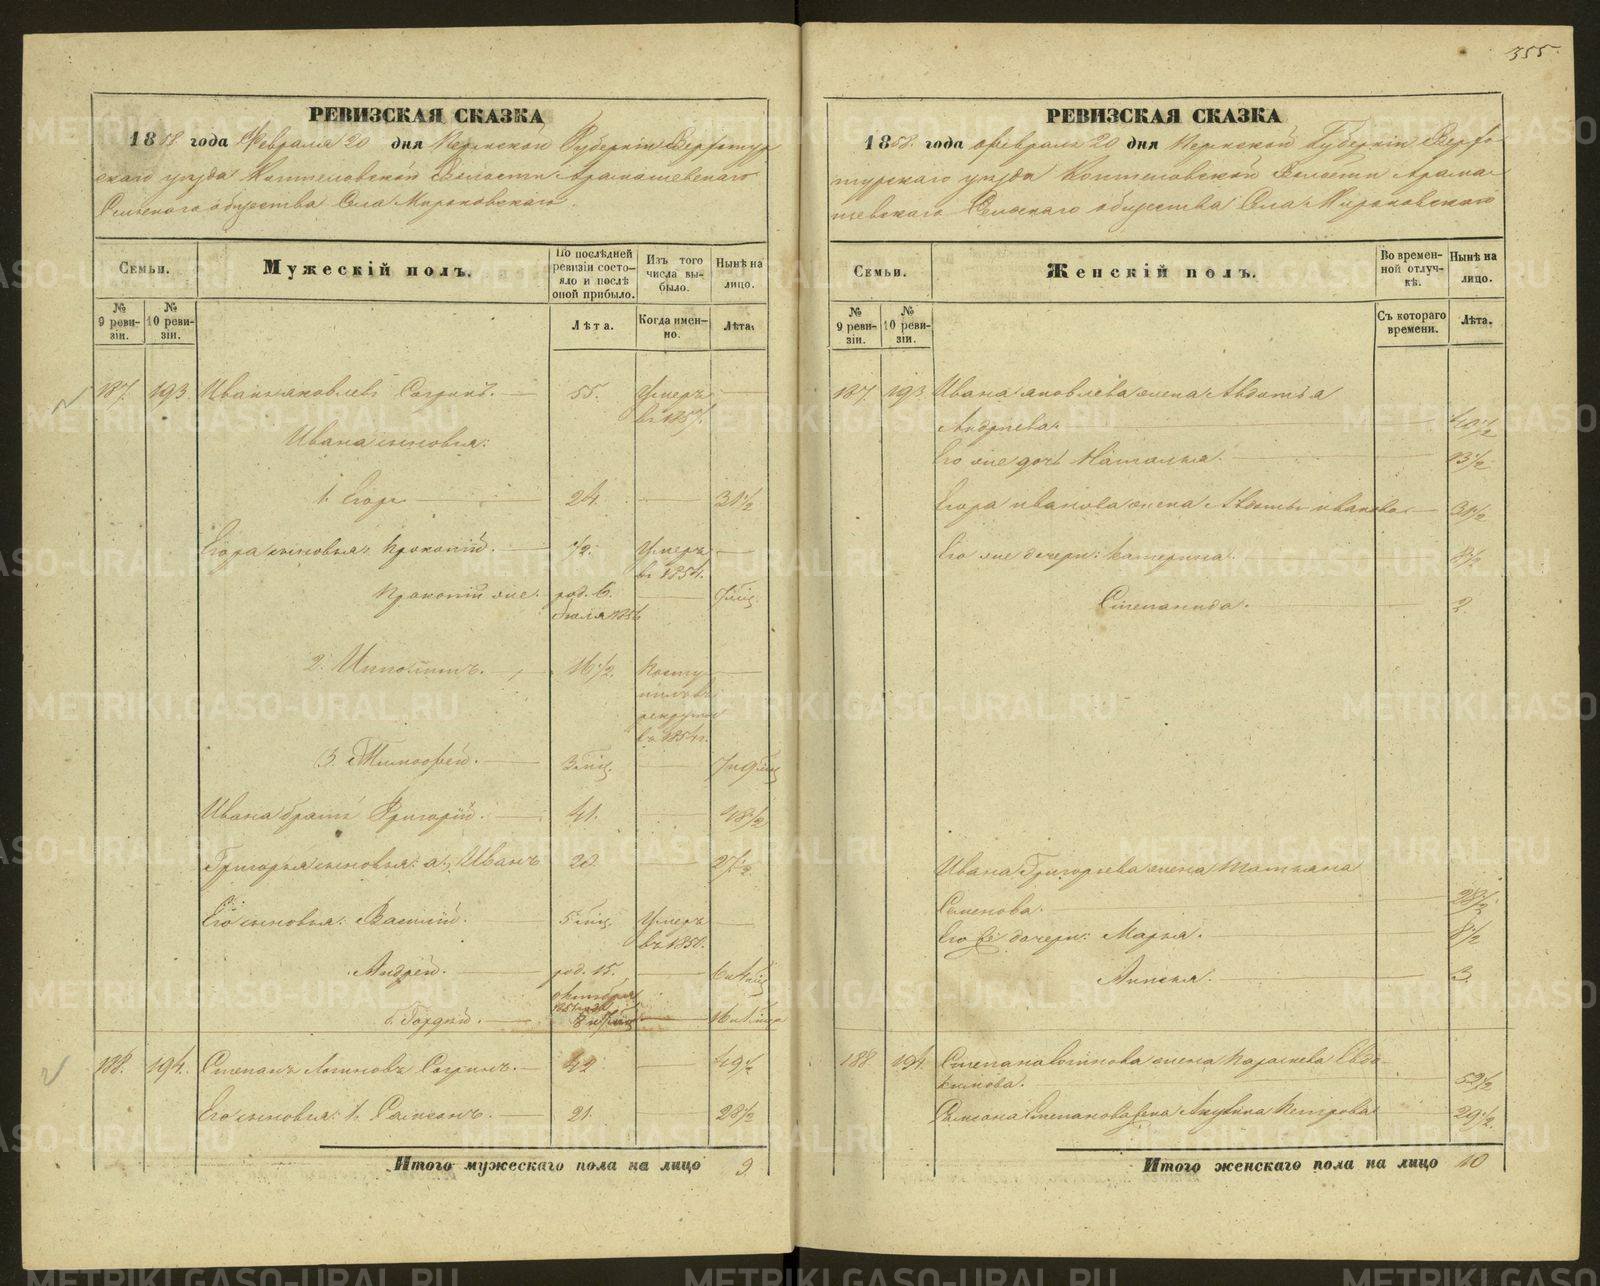 355.
РЕВИЗСКАЯ СКАЗКА
1858. года Февраля 20 дня Пермской Губерніи Верхотур
скаго уѣзда Коптеловской Волости Арамашевскаго
Сельскаго общества Села Мироновскаго.
Семьи.
Мужескій полъ.
По послѣдней ревизіи состояло и послѣ оной прибыло.
Изъ того числа выбыло.
Нынѣ на лицо.
№ 9 ревизіи.
№ 10 ревизіи.
Лѣта.
Когда именно.
Лѣта.
187. 193 Иванъ Яковлевъ 55. Умеръ
въ 1857.
Ивана сыновья:
1. Егоръ 24. 31 1/2
Егора сыновья: Прокопій. 1/2. Умеръ
въ 1854.
Прокопій же. род. 6.
2. Ипполитъ. 16 1/2. Посту
пилъ въ
рекруты
въ 1854 г.
3. Тимофей. 3 мѣс. 7 и 9 мѣс
Ивана братъ Григорій. 41. 48 1/2
Григорья сыновья: а, Иванъ 20. 27 1/2
Его сыновья: Василій. 5 мѣс. Умеръ
въ 1850.
Андрей. род. 15. 6 и 4 мѣс
октября
б. Гордей.
188. 194. Степанъ Логиновъ 42 49 1/2
Его сыновья: 1. Самсонъ. 21. 28 1/2
Итого мужескаго пола на лицо 9.
РЕВИЗСКАЯ СКАЗКА
1858. года февраля 20 дня Пермской Губерніи Верхо-
турскаго уѣзда Коптеловской Волости Арама-
шевскаго Сельскаго общества Села Мироновскаго
Семьи.
Женскій полъ.
Во временной отлучкѣ.
Нынѣ на лицо.
№ 9 ревизіи.
№ 10 ревизіи.
Съ котораго времени.
Лѣта.
187. 193. Ивана Яковлева жена Авдотья
Андреева. 40 1/2
Его же дочь Наталья. 13 1/2
Егора Иванова жена Авдотья Иванова 31 1/2
Его же дочери: Катерина. 8 1/2
Степанида. 2.
Ивана Григорьева жена Татьяна
Семенова. 28 1/2
Его дочери: Марья. 8 1/2
Анисья. 3.
188 194. Степана Логинова жена Евдо-
кимова. 52 1/2
Самсона Степанова жена Акулина Петрова 29 1/2.
Итого женскаго пола на лицо 10
METRIKI.GASO-URAL.RU